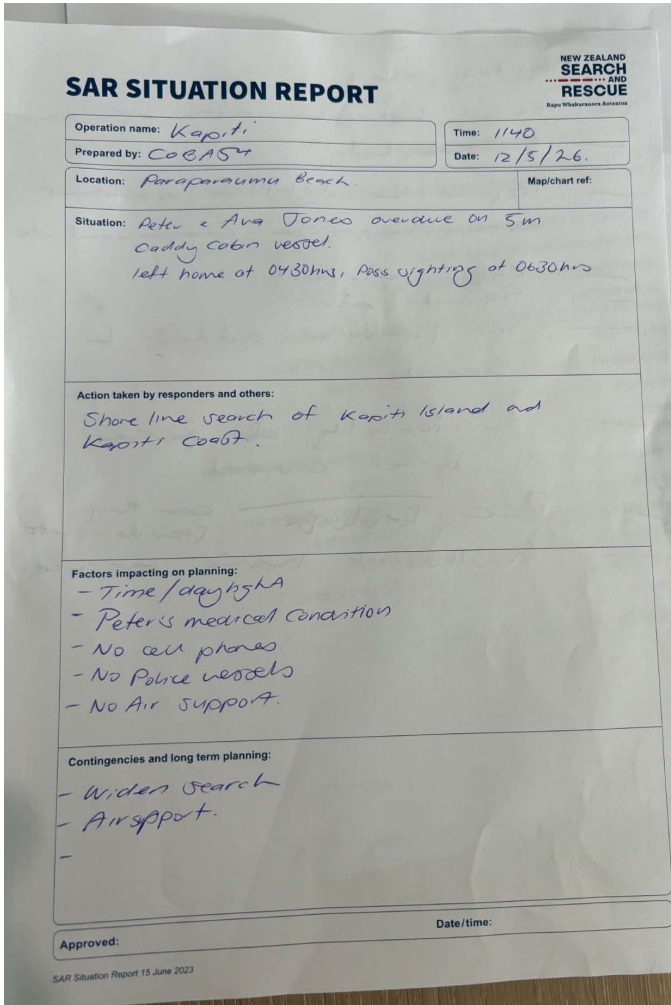 NEW ZEALAND
SEARCH
AND
RESCUE
Rapu Whakarauora Aotearoa
SAR SITUATION REPORT
Operation name: Kapiti
Time: 1140
Prepared by: COBA54
Date: 12/5/26.
Location: Paraparaumu Beach.
Map/chart ref:
Situation: Peter & Ava Jones overdue on 5m
Caddy Cabin vessel.
left home at 0430hrs, Poss sighting at 0630hrs
Action taken by responders and others:
Shore line search of Kapiti Island and
Kapiti Coast.
Factors impacting on planning:
- Time/daylight
- Peter's medical condition
- No cell phones.
- No Police vessels
- No Air support.
Contingencies and long term planning:
- Widen search
- Air spport.
-
Approved:
Date/time:
SAR Situation Report 15 June 2023